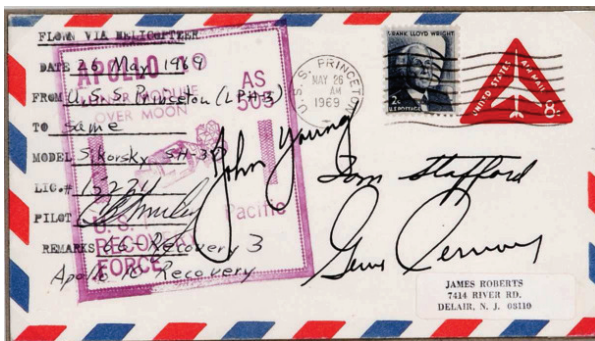 FLOWN VIA HELICOPTER
DATE 26 May 1969
FROM U.S.S. Princeton (LPH-5)
TO Same
MODEL Sikorsky SH-3D
LIC.#
PILOT
REMARKS 66-Recovery 3
Apollo 10 Recovery
APOLLO 10
AS
505
LUNAR MODULE
OVER MOON
Pacific
RECOVERY
FORCE
U.S.S. PRINCETON
MAY 26
AM
1969
FRANK LLOYD WRIGHT
2¢
U.S. POSTAGE
UNITED STATES
AIR MAIL
John Young
Tom Stafford
Gene Cernan
JAMES ROBERTS
7414 RIVER RD.
DELAIR, N. J. 08110